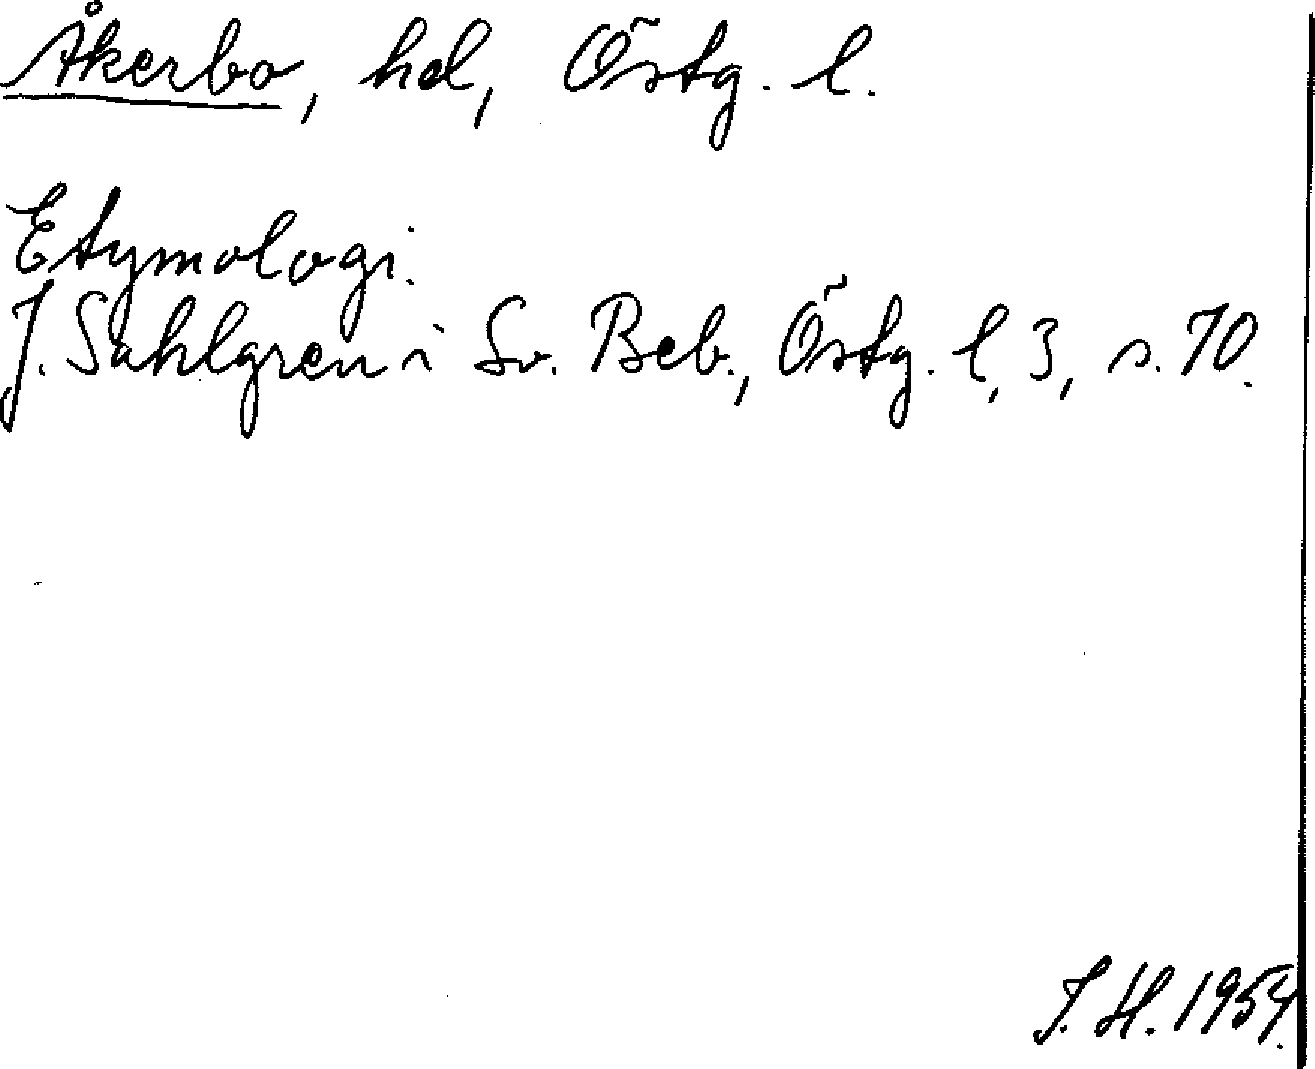 Åkerbo, hd, Östg. l.
Etymologi.
J. Sahlgren i Sv. Beb., Östg. l, 3, s. 70.
J. H. 1954.